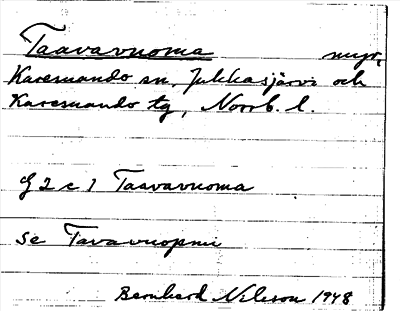 Taavavuoma myr,
Karesuando sn, Jukkasjärvi och
Karesuando tg, Norrb. l.
G 2 c 1 Taavavuoma
se Tavavuopmi
Bernhard Nilsson 1948